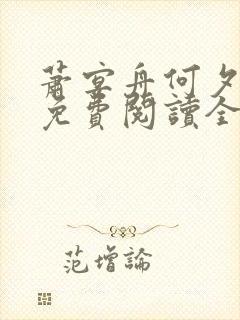 蕭宴舟何夕
免費閱讀全
范增論